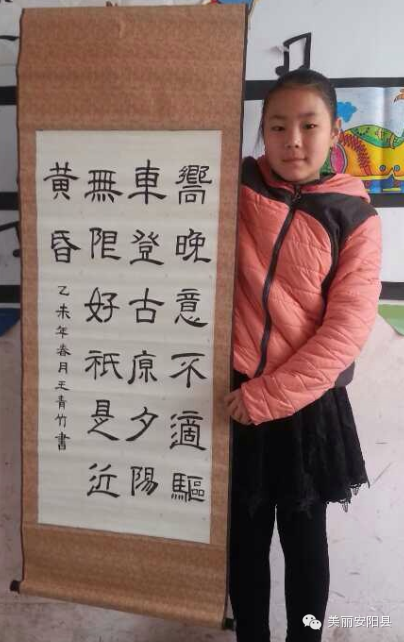 嚮晚意不適驅
車登古原夕陽
無限好祇是近
黃昏
乙未年春月王青竹書
美丽安阳县